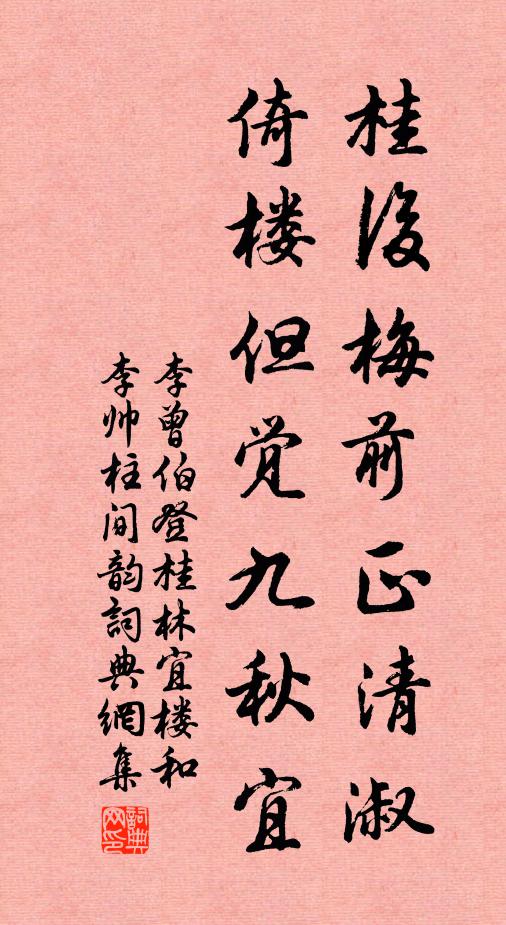 桂後梅前正清淑
倚楼但觉九秋宜
李曾伯登桂林宜楼和
李帅柱间韵詞典網集
詞典网印